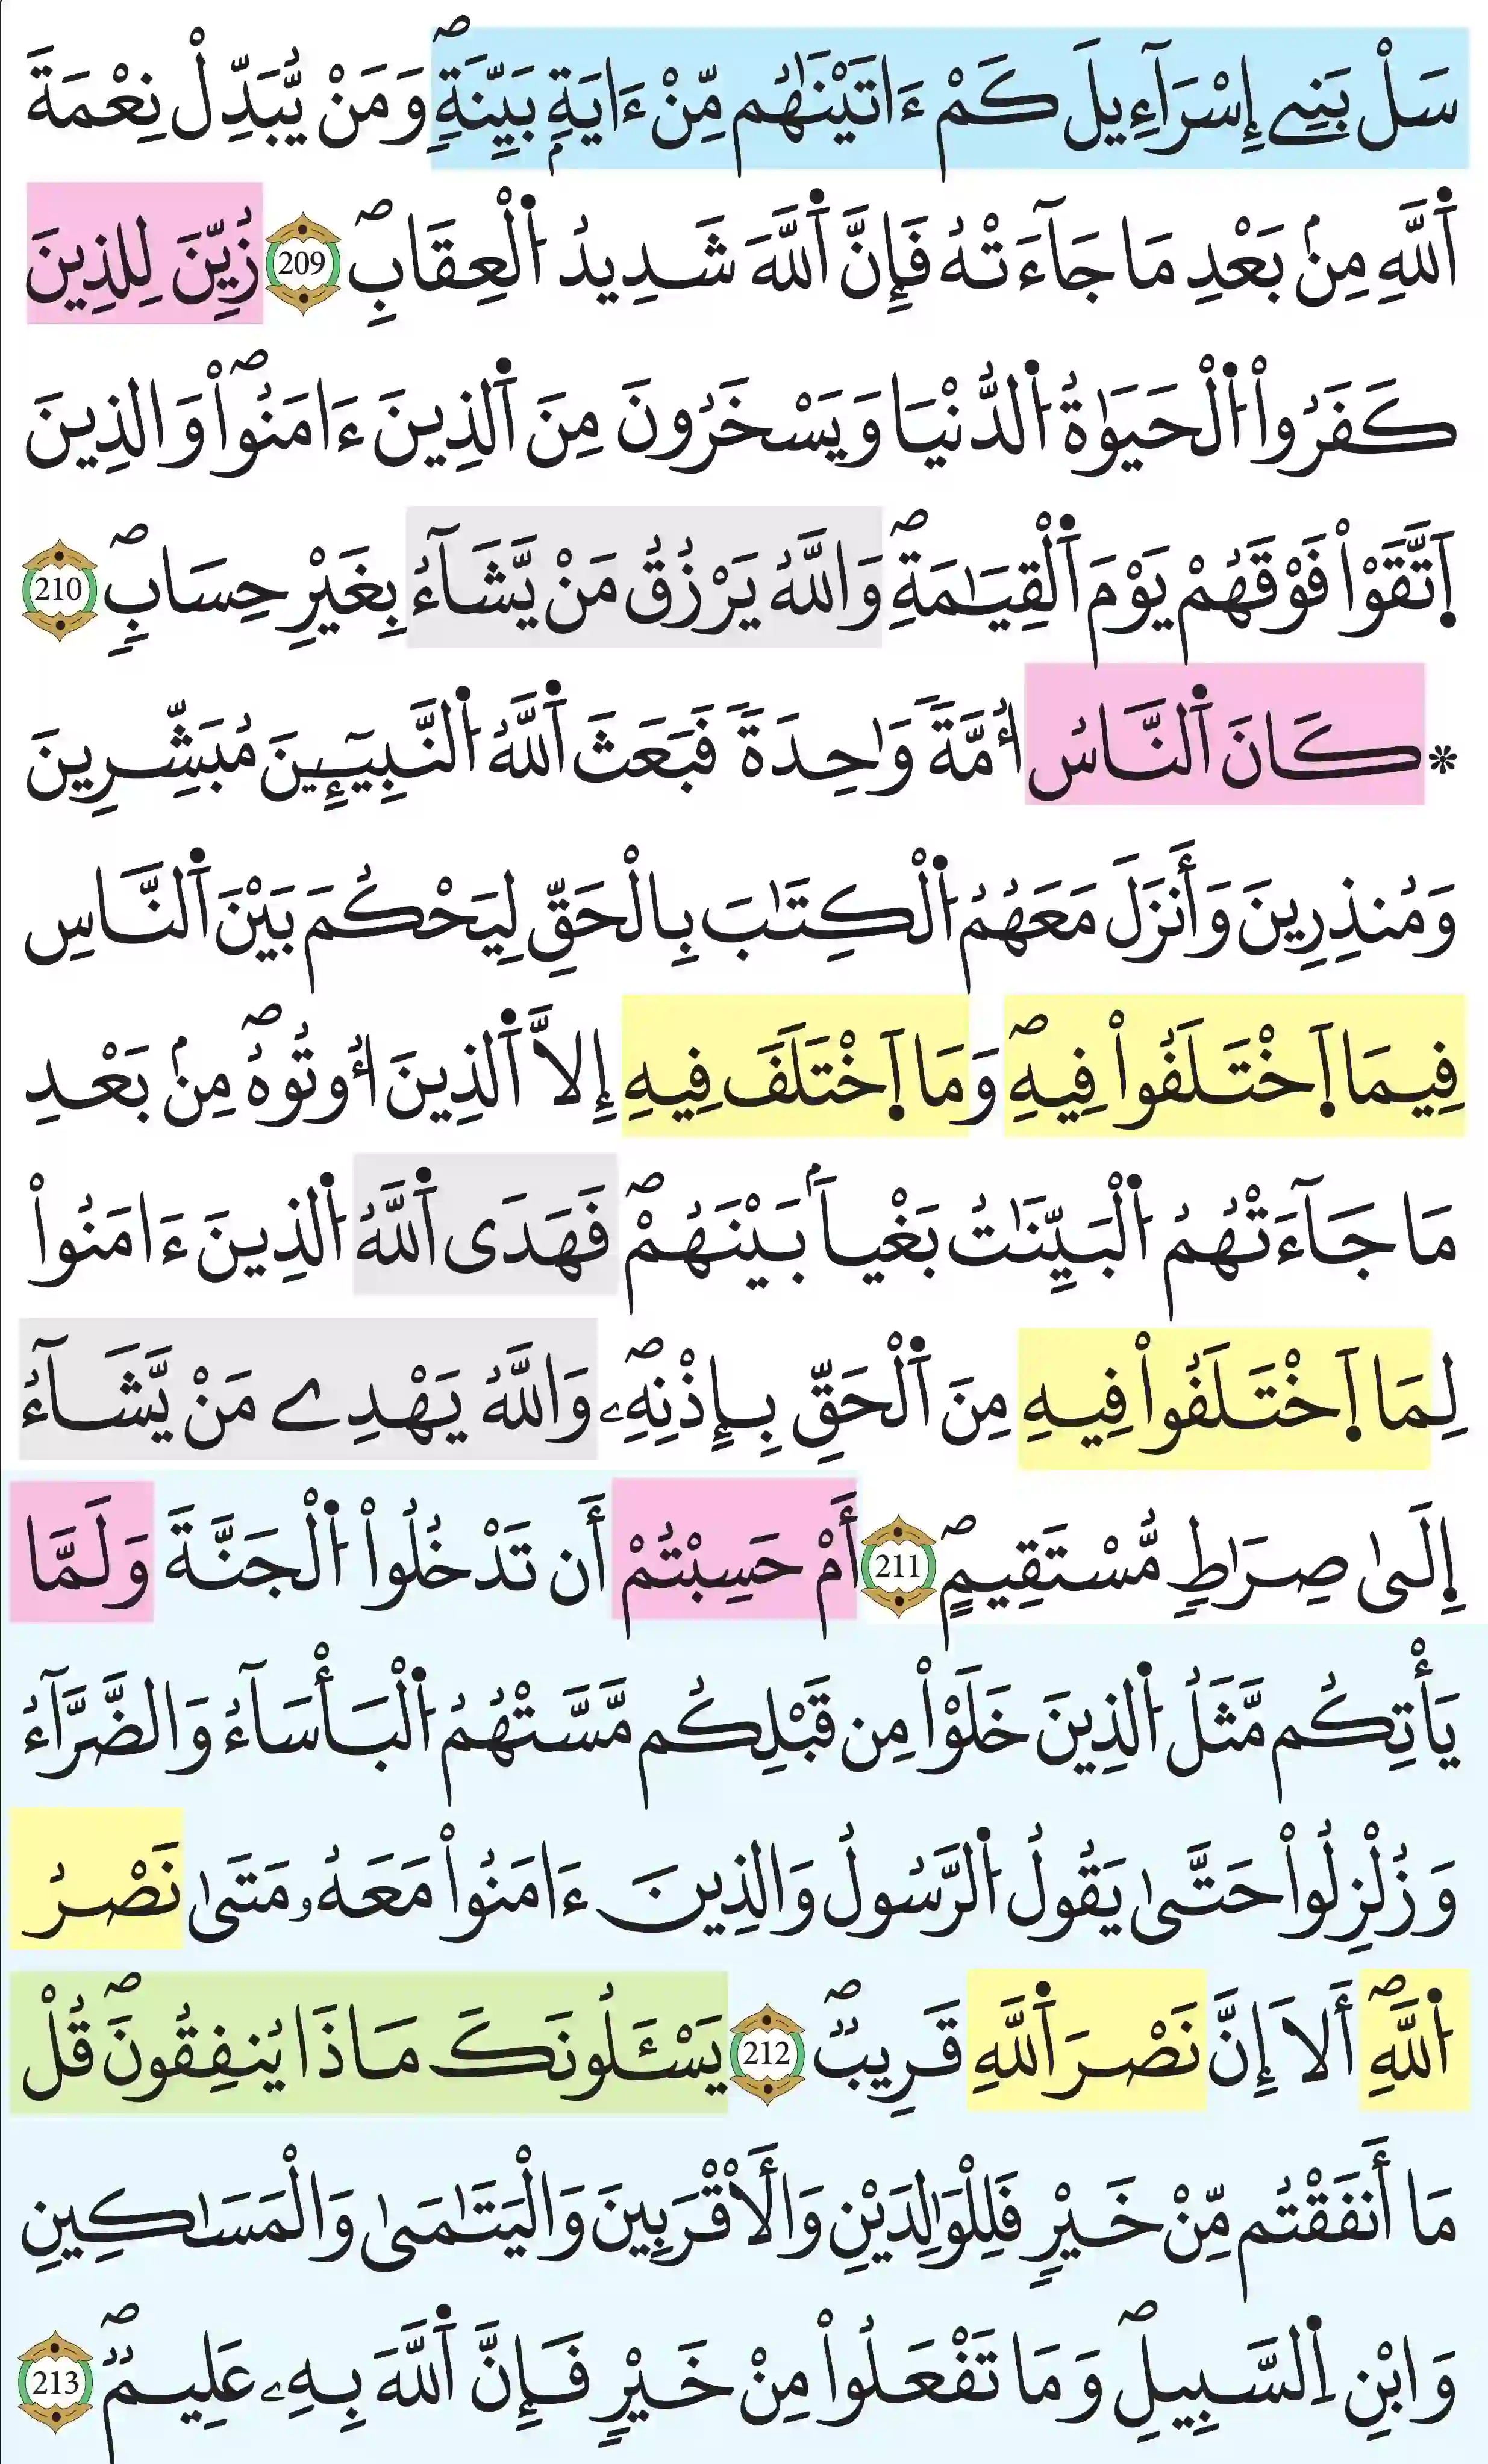 سَلْ بَنِےٓ إِسْرَآءِيلَ كَمْ ءَاتَيْنَٰهُم مِّنْ ءَايَةِۢ بَيِّنَةٍۖ وَمَنْ يُّبَدِّلْ نِعْمَةَ
اَ۬للَّهِ مِنۢ بَعْدِ مَا جَآءَتْهُ فَإِنَّ اَ۬للَّهَ شَدِيدُ اُ۬لْعِقَابِۖ 209 زُيِّنَ لِلذِينَ
كَفَرُواْ اُ۬لْحَيَوٰةُ اُ۬لدُّنْيَا وَيَسْخَرُونَ مِنَ اَ۬لذِينَ ءَامَنُواْۖ وَالذِينَ
اَ۪تَّقَوْاْ فَوْقَهُمْ يَوْمَ اَ۬لْقِيَٰمَةِۖ وَاللَّهُ يَرْزُقُ مَنْ يَّشَآءُ بِغَيْرِ حِسَابٍۖ 210
* كَانَ اَ۬لنَّاسُ أُمَّةٗ وَٰحِدَةٗ فَبَعَثَ اَ۬للَّهُ اُ۬لنَّبِيٓـِٕينَ مُبَشِّرِينَ
وَمُنذِرِينَ وَأَنزَلَ مَعَهُمُ اُ۬لْكِتَٰبَ بِالْحَقِّ لِيَحْكُمَ بَيْنَ اَ۬لنَّاسِ
فِيمَا اَ۪خْتَلَفُواْ فِيهِۖ وَمَا اَ۪خْتَلَفَ فِيهِ إِلَّا اَ۬لذِينَ أُوتُوهُۖ مِنۢ بَعْدِ
مَا جَآءَتْهُمُ اُ۬لْبَيِّنَٰتُ بَغْياَۢ بَيْنَهُمْۖ فَهَدَى اَ۬للَّهُ اُ۬لذِينَ ءَامَنُواْ
لِمَا اَ۪خْتَلَفُواْ فِيهِ مِنَ اَ۬لْحَقِّ بِإِذْنِهِۦۖ وَاللَّهُ يَهْدِے مَنْ يَّشَآءُ
اِ۪لَىٰ صِرَٰطٖ مُّسْتَقِيمٍۖ 211 أَمْ حَسِبْتُمْ أَن تَدْخُلُواْ اُ۬لْجَنَّةَ وَلَمَّا
يَأْتِكُم مَّثَلُ اُ۬لذِينَ خَلَوْاْ مِن قَبْلِكُم مَّسَّتْهُمُ اُ۬لْبَأْسَآءُ وَالضَّرَّآءُ
وَزُلْزِلُواْ حَتَّىٰ يَقُولُ اُ۬لرَّسُولُ وَالذِينَ ءَامَنُواْ مَعَهُۥ مَتَىٰ نَصْرُ
اُ۬للَّهِۖ أَلَا إِنَّ نَصْرَ اَ۬للَّهِ قَرِيبٞۖ 212 يَسْـَٔلُونَكَ مَاذَا يُنفِقُونَۖ قُلْ
مَا أَنفَقْتُم مِّنْ خَيْرٖ فَلِلْوَٰلِدَيْنِ وَالْأَقْرَبِينَ وَالْيَتَٰمَىٰ وَالْمَسَٰكِينِ
وَابْنِ اِ۬لسَّبِيلِۖ وَمَا تَفْعَلُواْ مِنْ خَيْرٖ فَإِنَّ اَ۬للَّهَ بِهِۦ عَلِيمٞۖ 213